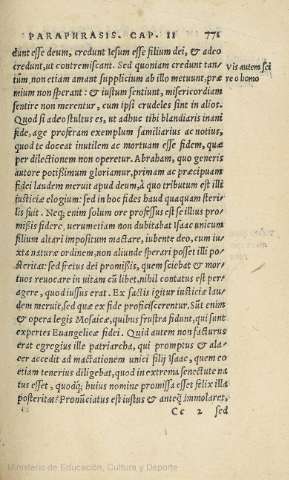 PARAPHRASIS. CAP. II 771
dunt esse deum, credunt Iesum esse filium dei, & adeo
credunt, ut contremiscant. Sed quoniam credunt tan/
tum, non etiam amant supplicium ab illo metuunt, præ
mium non sperant: & iustum sentiunt, misericordiam
sentire non merentur, cum ipsi crudeles sint in alios.
Vis autem sci
re o homo
Quod si adeo stultus es, ut adhuc tibi blandiaris inani
fide, age proferam exemplum familiarius ac notius,
quod te doceat inutilem ac mortuam esse fidem, quæ
per dilectionem non operetur. Abraham, quo generis
autore potissimum gloriamur, primam ac præcipuam
fidei laudem meruit apud deum, à quo tributum est illi
iusticiæ elogium: sed in hoc fides haud quaquam steri/
lis fuit. Neq; enim solum ore professus est se illius pro/
missis fidere, uerumetiam non dubitabat Isaac unicum
filium altari impositum mactare, iubente deo, cum iu/
xta naturæ ordinem, non aliunde sperari posset illi po/
steritas: sed fretus dei promissis, quem sciebat & mor/
tuos reuocare in uitam cũ libet, nihil contatus est per/
agere, quod iussus erat. Ex factis igitur iusticiæ lau/
dem meruit, sed quæ ex fide proficiscerentur. Sũt enim
& opera legis Mosaicæ, quibus frustra fidunt, qui sunt
expertes Euangelicæ fidei. Quid autem non facturus
erat egregius ille patriarcha, qui promptus & ala/
cer accedit ad mactationem unici filij Isaac, quem eo
etiam tenerius diligebat, quod in extrema senectute na
tus esset, quodq; huius nomine promissa esset felix illa
posteritas? Pronũciatus est iustus & anteq̃ immolaret
Cc 2 sed
Ministerio de Educación, Cultura y Deporte